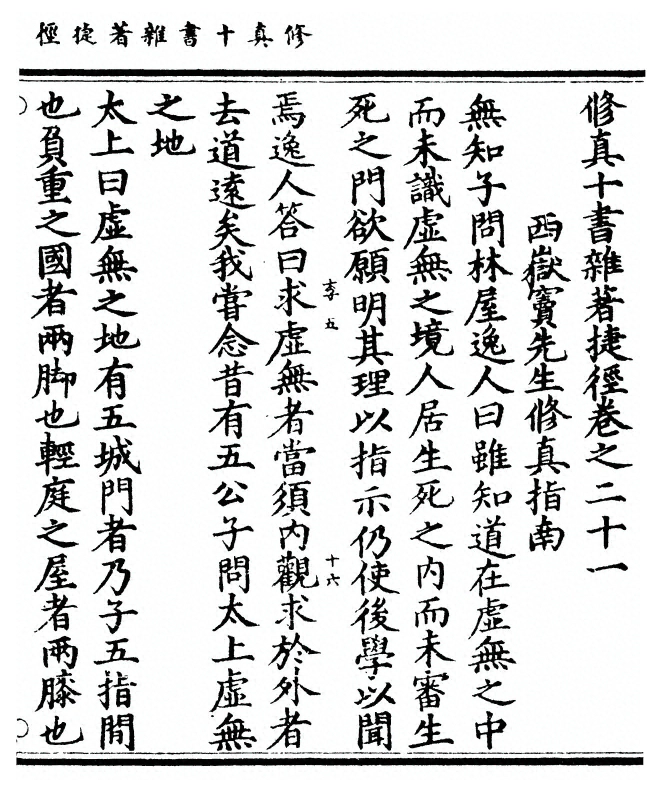 修真十書雜著捷徑
脩真十書雜著捷徑卷之二十一
西嶽竇先生修真指南
無知子問林屋逸人曰雖知道在虛無之中
而未識虛無之境人居生死之内而未審生
死之門欲願明其理以指示仍使後學以聞
李五
十六
焉逸人答曰求虛無者當須内觀求於外者
去道遠矣我嘗念昔有五公子問太上虛無
之地
太上曰虛無之地有五城門者乃子五指間
也負重之國者兩脚也輕庭之屋者兩膝也